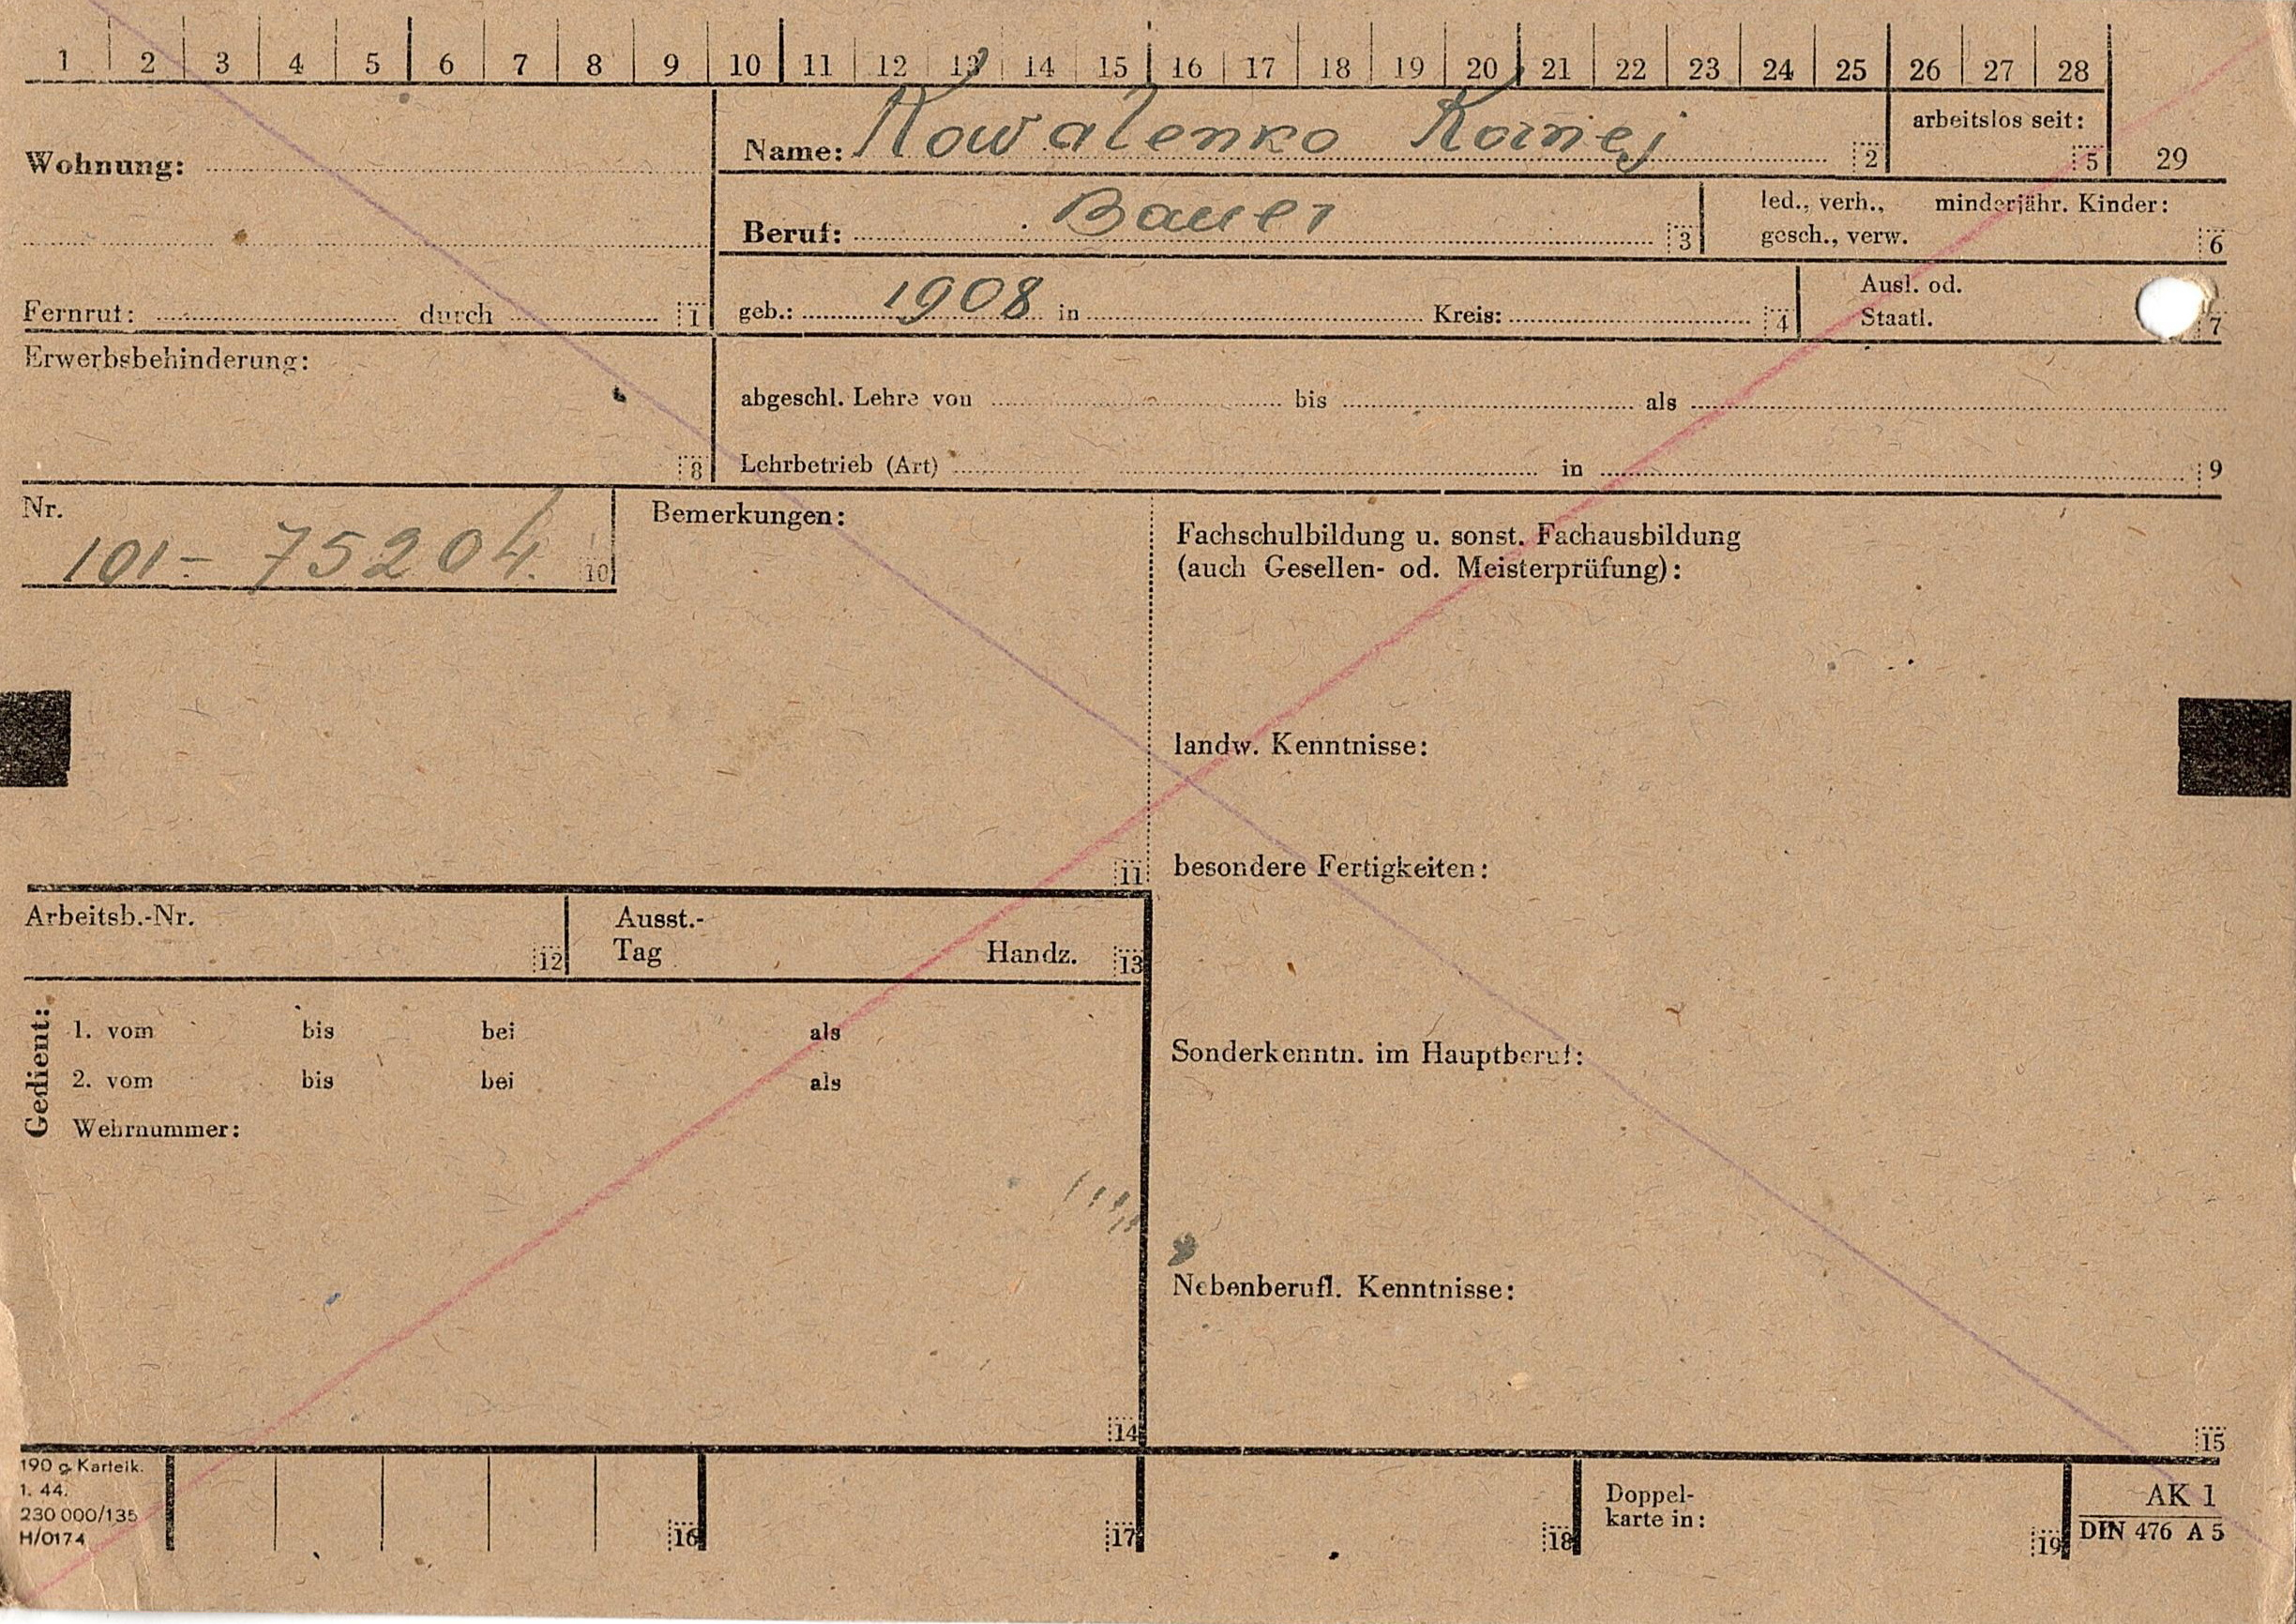 1 2 3 4 5 6 7 8 9 10 11 12 13 14 15 16 17 18 19 20 21 22 23 24 25 26 27 28
Wohnung:
Name: Kowalenko Kornej 2
arbeitslos seit: 5
29
Beruf: Bauer 3
led., verh., minderjähr. Kinder:
gesch., verw. 6
Fernruf: durch 1
geb.: 1908 in Kreis: 4
Ausl. od.
Staatl. 7
Erwerbsbehinderung:
8
abgeschl. Lehre von bis als
Lehrbetrieb (Art) in 9
Nr.
101- 75204. 10
Bemerkungen:
11
Fachschulbildung u. sonst. Fachausbildung
(auch Gesellen- od. Meisterprüfung):
landw. Kenntnisse:
besondere Fertigkeiten:
Arbeitsb.-Nr. 12
Ausst.-
Tag Handz. 13
Gedient:
1. vom bis bei als
2. vom bis bei als
Wehrnummer:
14
Sonderkenntn. im Hauptberuf:
Nebenberufl. Kenntnisse:
15
190 g. Karteik.
1. 44.
230 000/135
H/0174
16 17 18
Doppel-
karte in: 19
AK 1
DIN 476 A 5